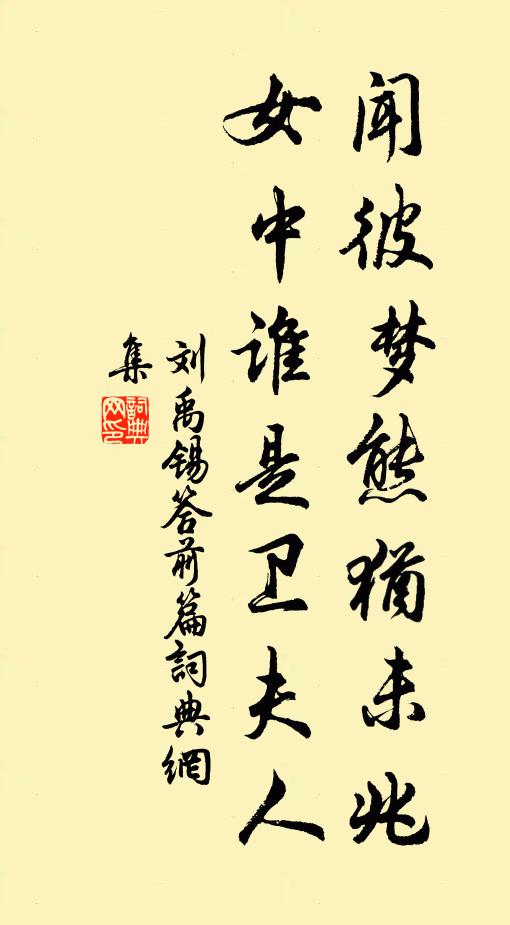 闻彼梦熊犹未兆
女中谁是卫夫人
刘禹锡答前篇詞典網
集
詞典
网印